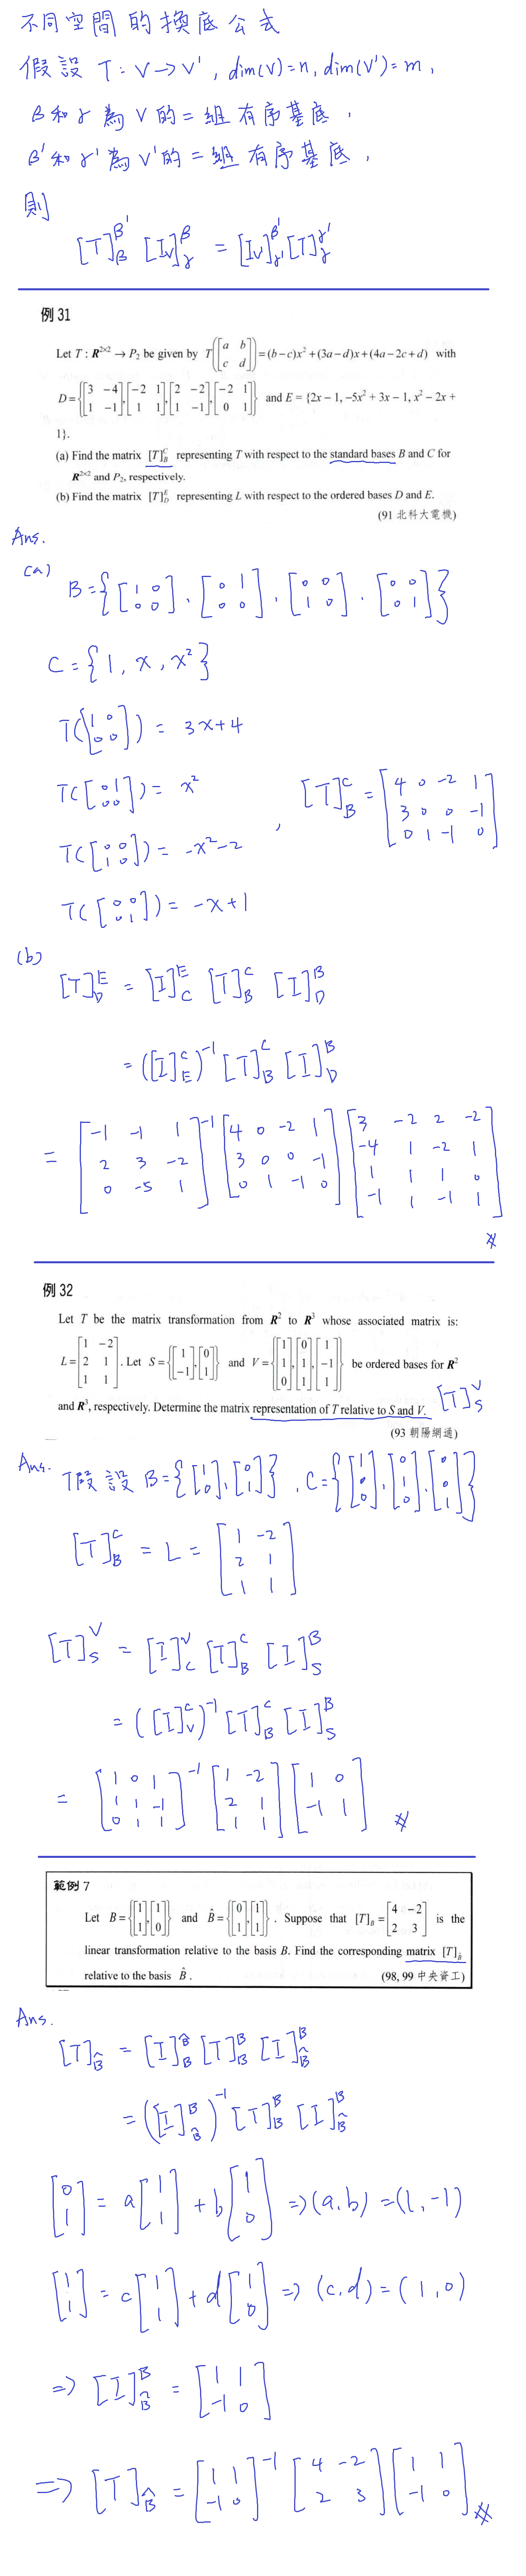 不同空間的換底公式
假設 T: V→V', dim(V)=n, dim(V')=m,
β和γ為V的二組有序基底,
β'和γ'為V'的二組有序基底,
則
[T]_β^β' [Iv]_γ^β = [Iv]_γ'^β' [T]_γ^γ'
例 31
Let T : R^{2×2} → P₂ be given by T([a b; c d]) = (b−c)x² + (3a−d)x + (4a−2c+d) with
D = {[3 −4; 1 −1], [−2 1; 1 1], [2 −2; 1 −1], [−2 1; 0 1]} and E = {2x − 1, −5x² + 3x − 1, x² − 2x +
1}.
(a) Find the matrix [T]_B^C representing T with respect to the standard bases B and C for
R^{2×2} and P₂, respectively.
(b) Find the matrix [T]_D^E representing L with respect to the ordered bases D and E.
(91 北科大電機)
Ans.
(a)
B={[1 0; 0 0], [0 1; 0 0], [0 0; 1 0], [0 0; 0 1]}
C={1, x, x²}
T([1 0; 0 0]) = 3x+4
T([0 1; 0 0]) = x²
, [T]_B^C = [4 0 -2 1; 3 0 0 -1; 0 1 -1 0]
T([0 0; 1 0]) = -x²-2
T([0 0; 0 1]) = -x+1
(b)
[T]_D^E = [I]_C^E [T]_B^C [I]_D^B
= ([I]_E^C)^{-1} [T]_B^C [I]_D^B
= [-1 -1 1; 2 3 -2; 0 -5 1]^{-1} [4 0 -2 1; 3 0 0 -1; 0 1 -1 0] [3 -2 2 -2; -4 1 -2 1; 1 1 1 0; -1 1 -1 1]
#
例 32
Let T be the matrix transformation from R² to R³ whose associated matrix is:
L = [1 −2; 2 1; 1 1]. Let S = {[1; −1], [0; 1]} and V = {[1; 1; 0], [0; 1; 1], [1; −1; 1]} be ordered bases for R²
and R³, respectively. Determine the matrix representation of T relative to S and V. [T]_S^V
(93 朝陽網通)
Ans. 假設 B={[1; 0], [0; 1]}, C={[1; 0; 0], [0; 1; 0], [0; 0; 1]}
[T]_B^C = L = [1 -2; 2 1; 1 1]
[T]_S^V = [I]_C^V [T]_B^C [I]_S^B
= ([I]_V^C)^{-1} [T]_B^C [I]_S^B
= [1 0 1; 1 1 -1; 0 1 1]^{-1} [1 -2; 2 1; 1 1] [1 0; -1 1] #
範例 7
Let B = {[1; 1], [1; 0]} and B̂ = {[0; 1], [1; 1]}. Suppose that [T]_B = [4 −2; 2 3] is the
linear transformation relative to the basis B. Find the corresponding matrix [T]_B̂
relative to the basis B̂.
(98, 99 中央資工)
Ans.
[T]_B̂ = [I]_B^B̂ [T]_B^B [I]_B̂^B
= ([I]_B̂^B)^{-1} [T]_B^B [I]_B̂^B
[0; 1] = a[1; 1] + b[1; 0] => (a,b) = (1,-1)
[1; 1] = c[1; 1] + d[1; 0] => (c,d) = (1,0)
=> [I]_B̂^B = [1 1; -1 0]
=> [T]_B̂ = [1 1; -1 0]^{-1} [4 -2; 2 3] [1 1; -1 0] #